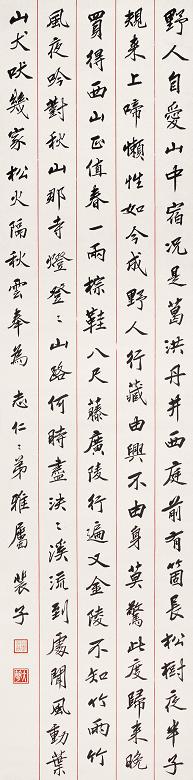 野人自愛山中宿況是葛洪丹井西庭前有箇長松樹夜半子
規来上啼懶性如今成野人行藏由興不由身莫驚此度歸来晚
買得西山正值春一兩棕鞋八尺藤廣陵行遍又金陵不知竹雨竹
風夜吟對秋山那寺燈登〻山路何時盡泱〻溪流到處聞風動葉
山犬吠幾家松火隔秋雲奉為志仁〻弟雅屬 裴子